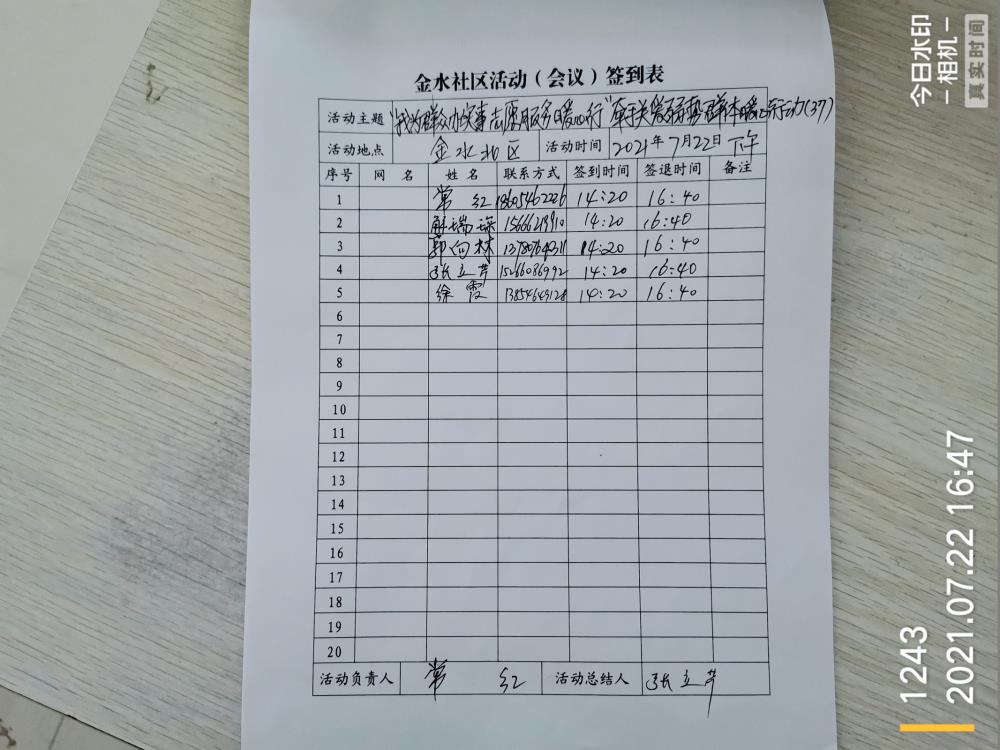 金水社区活动（会议）签到表
活动主题 "我为群众办实事志愿服务暖心行"牵手关爱弱势群体暖心行动(37)
活动地点 金水北区 活动时间 2021年7月22日下午
序号 网 名 姓 名 联系方式 签到时间 签退时间 备注
1 常 红 18605462226 14:20 16:40
2 解瑞琛 14:20 16:40
3 郭向林 14:20 16:40
4 张立芹 15266086992 14:20 16:40
5 徐 霞 13854649128 14:20 16:40
6
7
8
9
10
11
12
13
14
15
16
17
18
19
20
活动负责人 常 红 活动总结人 张立芹
今日水印
－相机－
真实时间
1243
2021.07.22 16:47